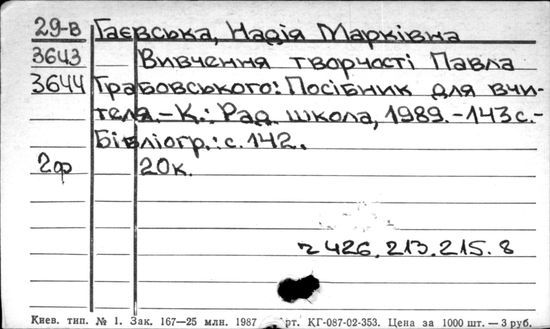 29-в Гаєвська, Надія Марківна
3643 Вивчення творчості Павла
3644 Грабовського: Посібник для вчи-
теля.-К.: Рад. школа, 1989.-143с.-
Бібліогр.: с.142.
2ф 20к.
ч 426, 213, 215. 8
Киев. тип. № 1. Зак. 167—25 млн. 1987 рт. КГ-087-02-353. Цена за 1000 шт. — 3 руб.